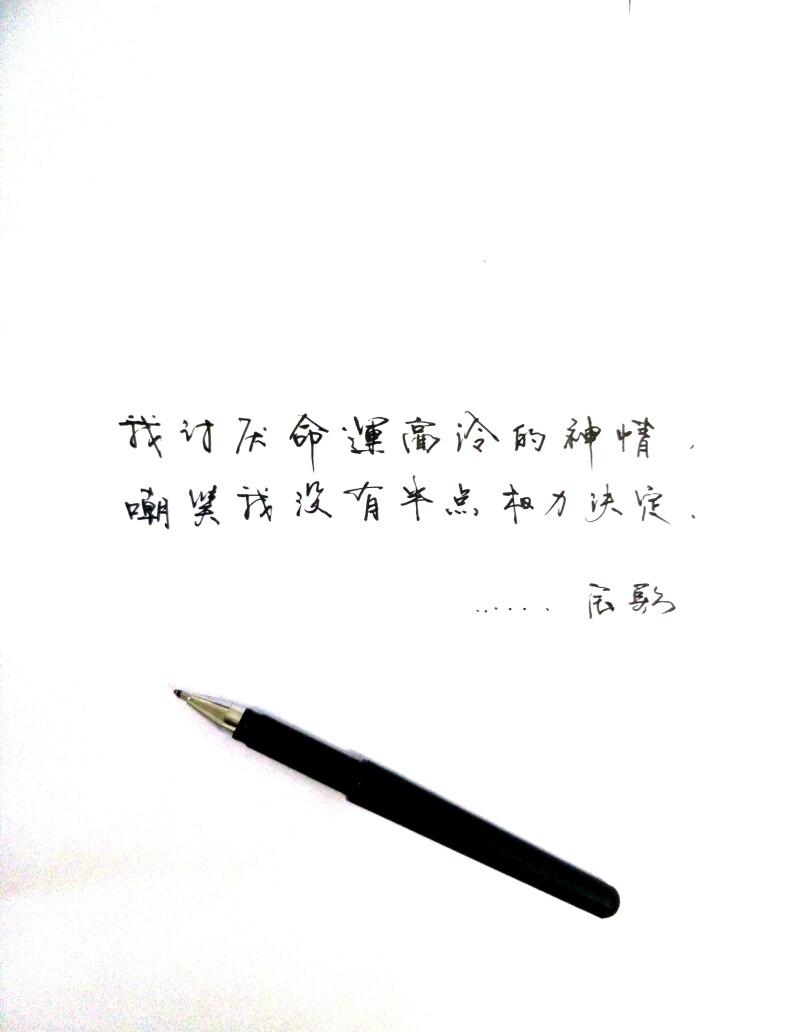 我讨厌命運高冷的神情.
嘲笑我没有半点权力决定.
......